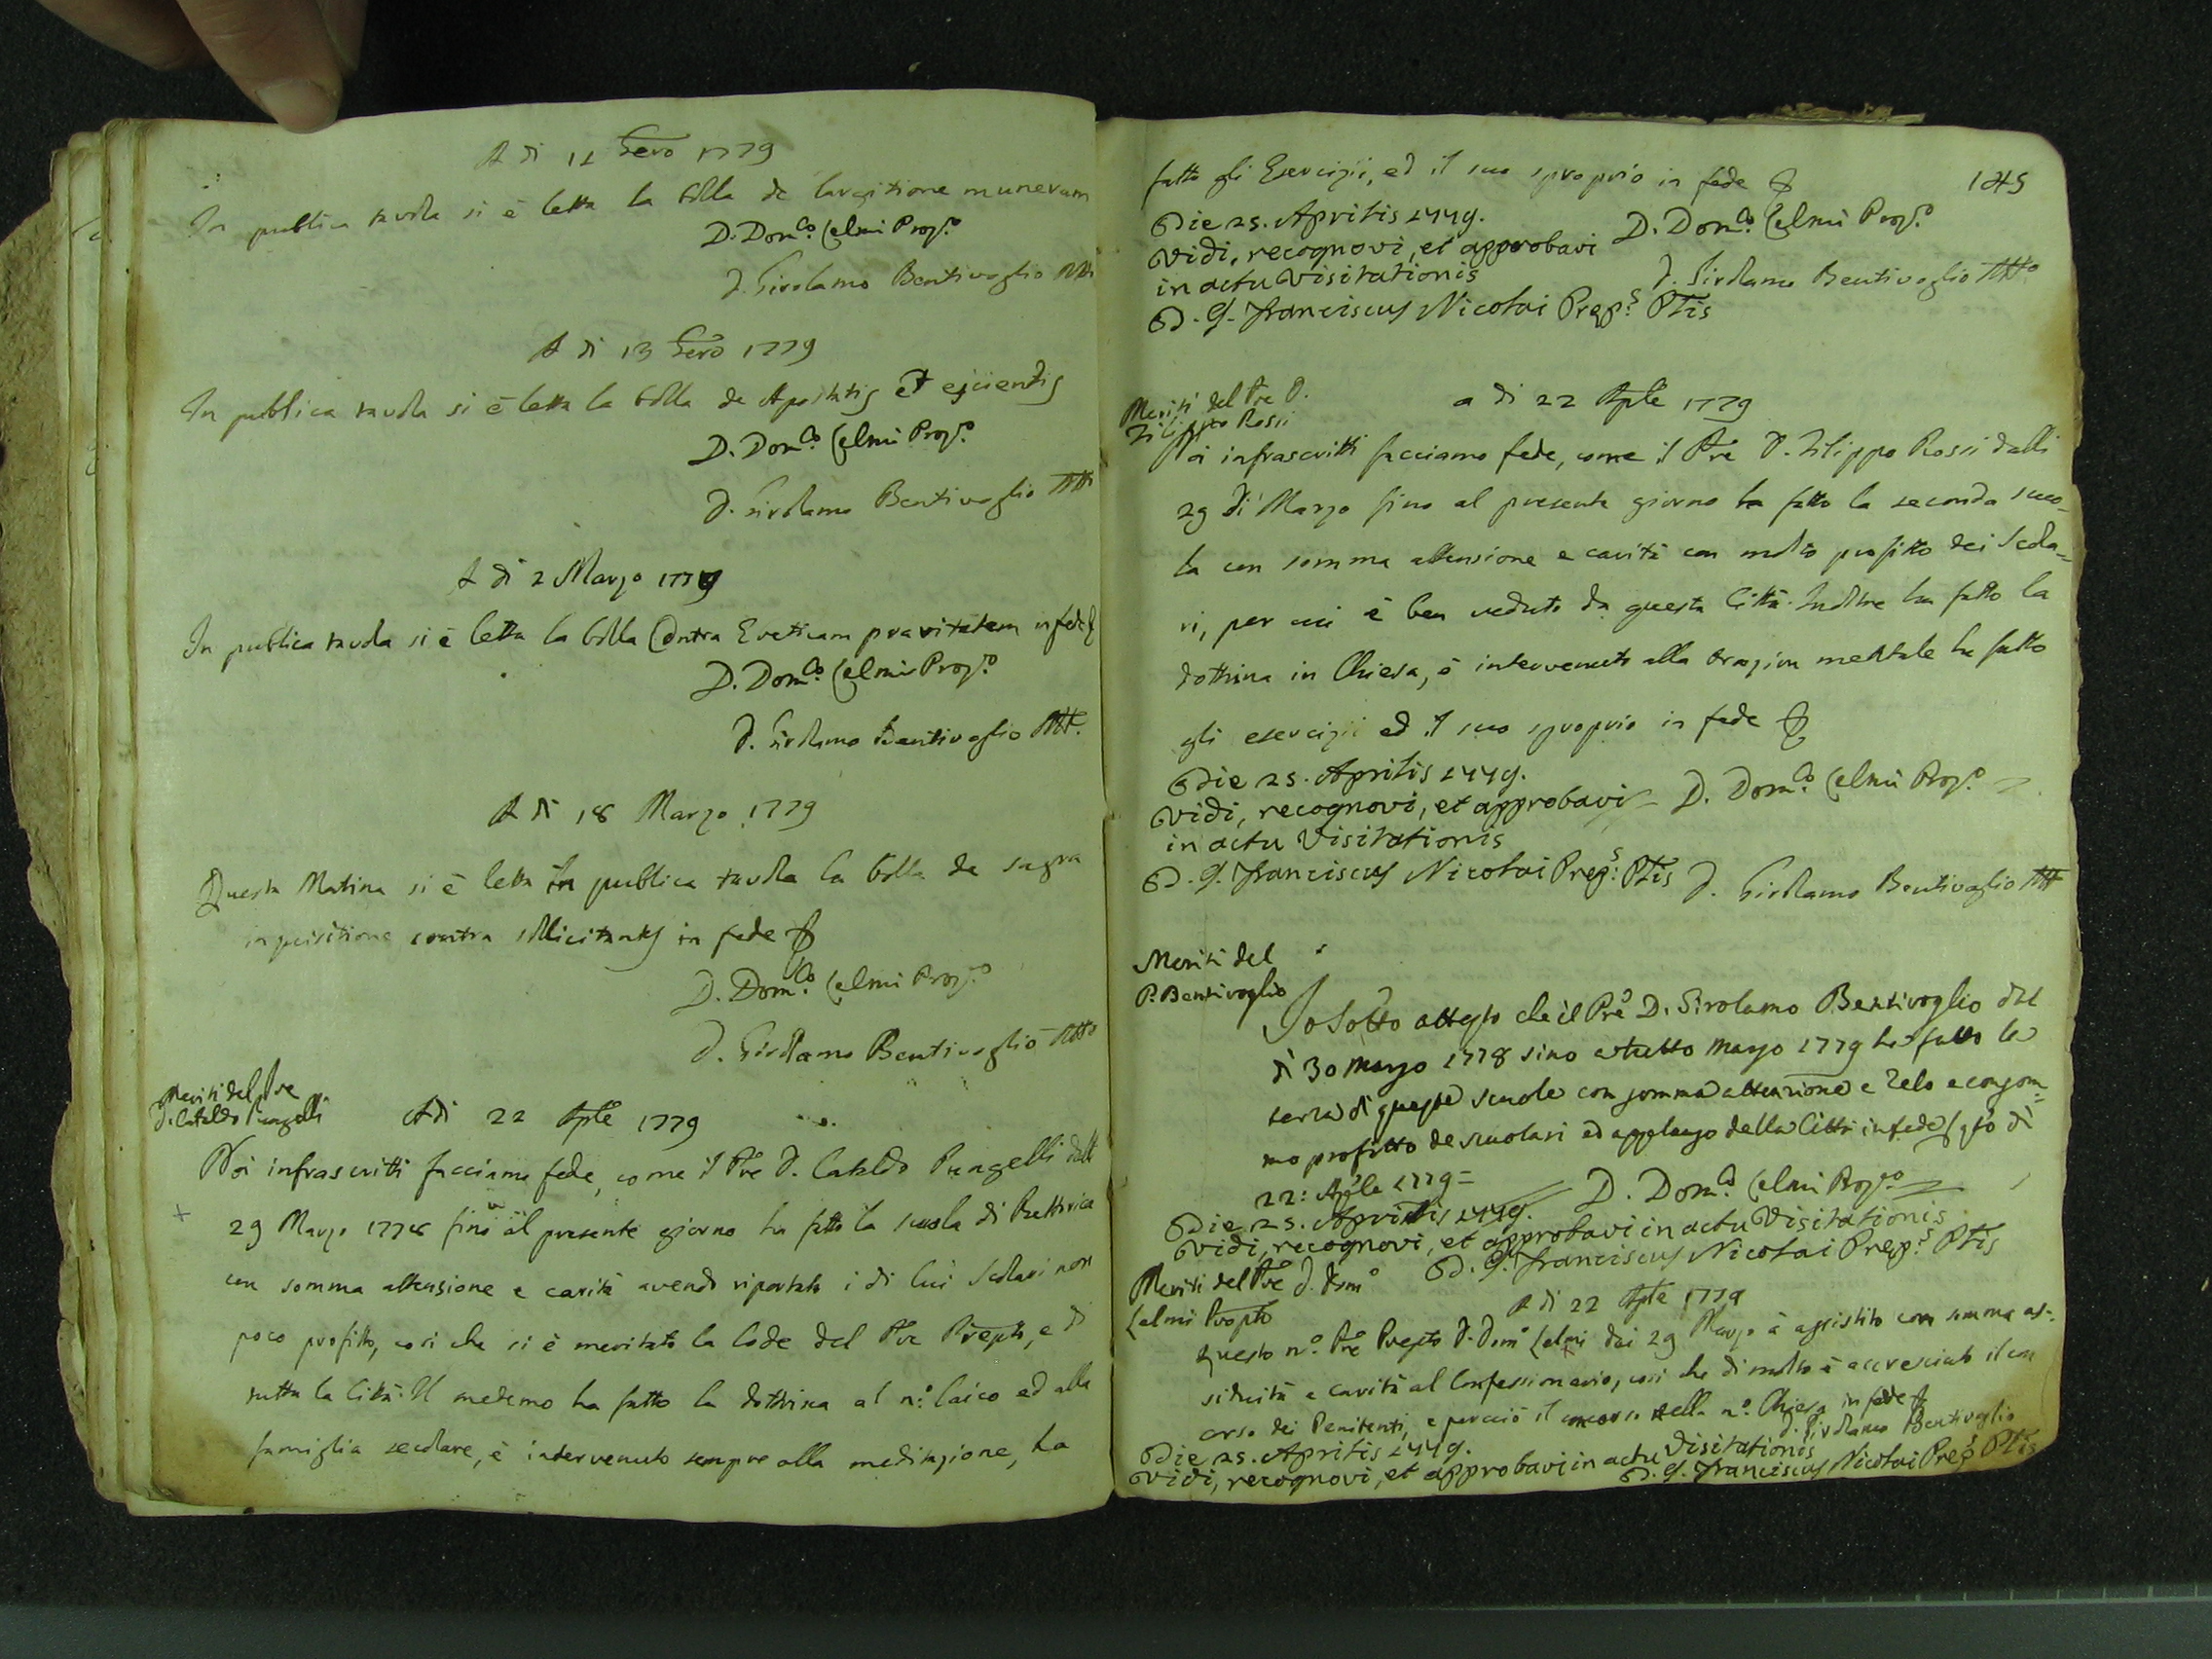 A dì 12 Genro 1779
In publica tavola si è letta la bolla de largitione munerum
D. Domco. Celmi Propo.
D. Girolamo Bentivoglio Atto
A dì 13 Genro 1779
In publica tavola si è letta la bolla de Apostatis et ejcientis
D. Domco. Celmi Propo.
D. Girolamo Bentivoglio Atto
A dì 2 Marzo 1779
In publica tavola si è letta la bolla Contra Ereticam pravitatem in fede
D. Domco. Celmi Propo.
D. Girolamo Bentivoglio Att.
A dì 18 Marzo 1779
Questa Matina si è letta in publica tavola la bolla de sagra
inquisitione contra sollicitantes in fede
D. Domco. Celmi Propo.
D. Girolamo Bentivoglio Atto
Meriti del Pre
D. Cataldo Pungelli
Adì 22 Aple 1779
Noi infrascritti facciamo fede, come il Pre D. Cataldo Pungelli dalli
29 Marzo 1778 fino al presente giorno ha fatto la scuola di Rettorica
con somma attensione e carità avendo riportato i di lui Scolari non
poco profitto, così che si è meritato la lode del Pre Prepto, e di
tutta la Città. Il medemo ha fatto la dottrina al no. laico ed alla
famiglia secolare, è intervenuto sempre alla meditazione, ha
145
fatto gli Esercizii, ed il suo sproprio in fede
Die 25. Aprilis 1779.
Vidi, recognovi, et approbavi
D. Domco. Celmi Propo.
in actu Visitationis
D. Girolamo Bentivoglio Atto
D. G. Franciscus Nicolai Preps. Plis
Meriti del Pre D.
Filippo Rossi
a dì 22 Aple 1779
Noi infrascritti facciamo fede, come il Pre D. Filippo Rossi dalli
29 di Marzo fino al presente giorno ha fatto la seconda scuo-
la con somma attensione e carità con molto profitto dei Scola-
ri, per cui è ben veduto da questa Città. Inoltre ha fatto la
dottrina in Chiesa, è intervenuto alla orazion mentale ha fatto
gli esercizii ed il suo sproprio in fede
Die 25. Aprilis 1779.
Vidi, recognovi, et approbavi
D. Domco. Celmi Propo.
in actu Visitationis
D. G. Franciscus Nicolai Preps. Plis
D. Girolamo Bentivoglio Att
Meriti del
P. Bentivoglio
Io sotto attesto che il Pre D. Girolamo Bentivoglio dal
dì 30 Marzo 1778 sino a tutto Marzo 1779 ha fatto la
terza di queste scuole con somma attenzione e zelo e con som-
mo profitto de scuolari ed applauso della Città in fede q.to dì
22: Aple 1779=
D. Domco. Celmi Propo
Die 25. Aprilis 1779.
Vidi, recognovi, et approbavi in actu Visitationis
D. G. Franciscus Nicolai Preps. Plis
Meriti del Pre D. Domo
Celmi Propto
A dì 22 Aple 1779
Questo no. Pre Prepto D. Domo Celmi dai 29 Marzo à assistito con somma as-
siduità e carità al Confessionario, così che di molto è accresciuto il con
corso dei Penitenti, e perciò il concorso nella na. Chiesa in fede
D. Girolamo Bentivoglio
Die 25. Aprilis 1779.
Vidi, recognovi, et approbavi in actu Visitationis
D. G. Franciscus Nicolai Preps Plis